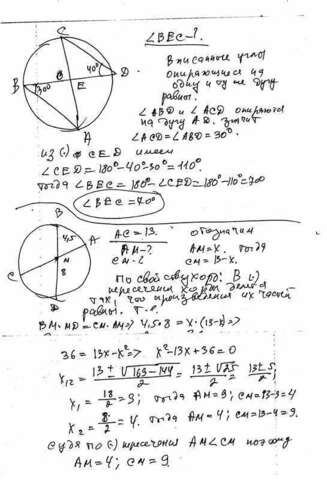 ∠BEC-?
C
Вписанные углы
опирающиеся на
одну и ту же дугу
равны.
40°
B
30°
O
E
D
A
∠ABD и ∠ACD опираются
на дугу AD. значит
∠ACD=∠ABD=30°.
из CED имеем
∠CED=180°-40°-30°=110°.
тогда ∠BEC=180°-∠CED=180°-110°=70°
∠BEC=70°
B
AC=13.
AM-?
CM-?
обозначим
AM=x. тогда
CM=13-x.
4,5
A
M
C
8
D
По свойству хорд: В
пересечения хорды делятся
так, что произведения их частей
равны. Т.е.
BM·MD=CM·AM=> 4,5·8=x·(13-x)=>
36=13x-x²=> x²-13x+36=0
x₁,₂=13±√169-144/2=13±√25/2=13±5/2;
x₁=18/2=9; тогда AM=9; CM=13-9=4
x₂=8/2=4. тогда AM=4; CM=13-4=9.
судя по пересечения AM<CM поэтому
AM=4; CM=9